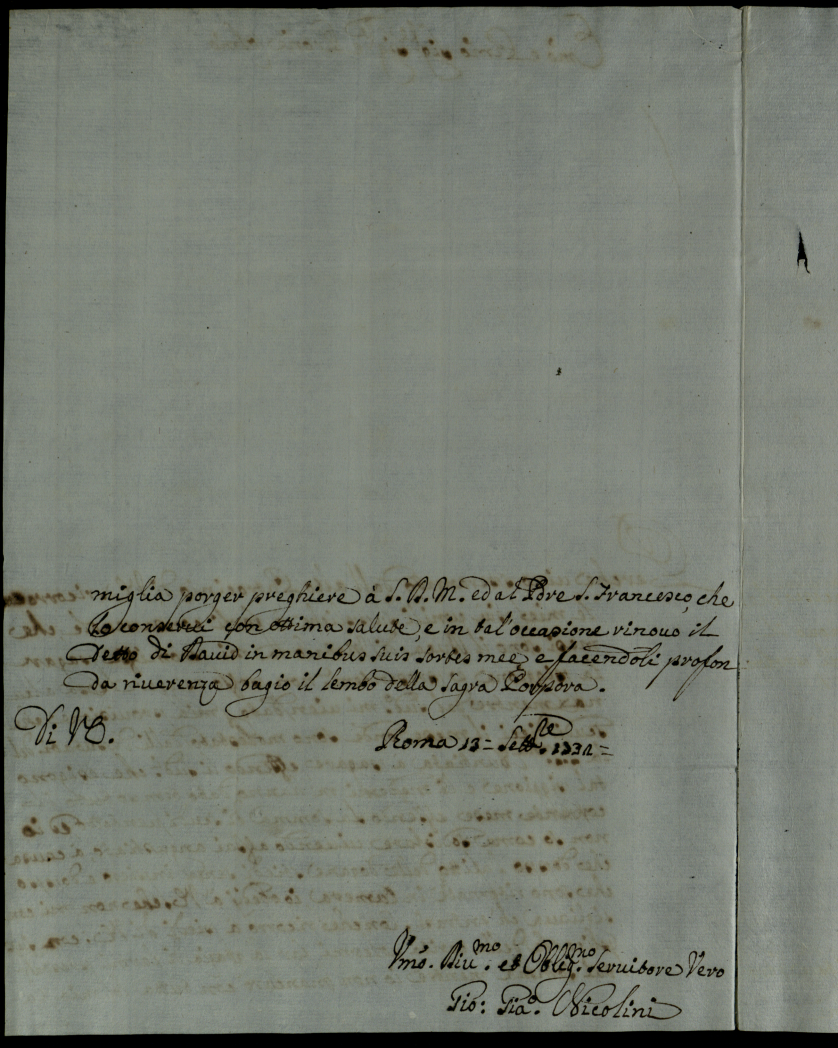 miglia porger preghiere à S. D. M. ed al Pdre S. Francesco, che
lo conservi con ottima salute, e in tal'occasione rinovo il
Detto di David in manibus suis sortes meę e facendoli profon
da riverenza bagio il lembo della Sagra Porpora.
Di VE.
Roma 13 = Settre
Vmo. Divmo. et Obligmo. Servitore Vero
Gio: Nicolini